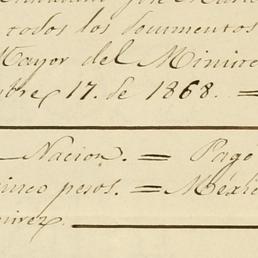 todos los documentos
Mayor del Minis
bre, 17. de 1868. =
Nacion. = Pagó
inco pesos. = Méxi
mirez.